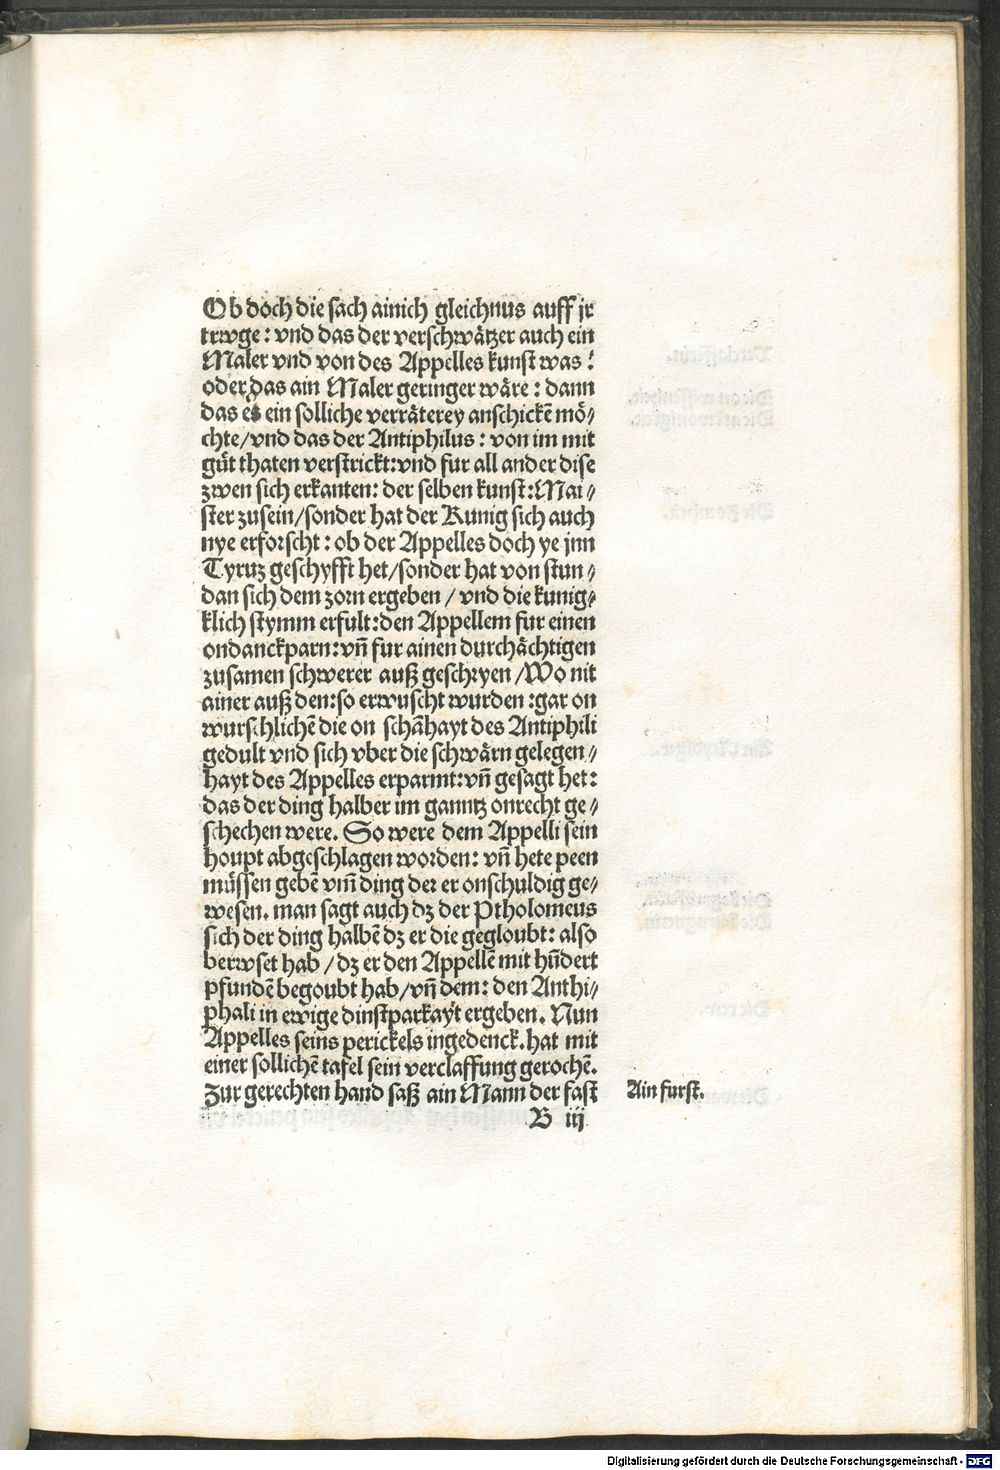 Ob doch die sach ainich gleichnus auff jr
trwge: vnd das der verschwätzer auch ein
Maler vnd von des Appelles kunst was:
oder das ain Maler geringer wäre: dann
das es ein solliche verräterey anschickē mö⸗
chte/vnd das der Antiphilus: von im mit
gůt thaten verstrickt:vnd fur all ander dise
zwen sich erkanten: der selben kunst:Mai⸗
ster zusein/sonder hat der Kunig sich auch
nye erforscht: ob der Appelles doch ye jnn
Tyruz geschyfft het/sonder hat von stun⸗
dan sich dem zorn ergeben / vnd die kunig⸗
klich stymm erfult:den Appellem fur einen
ondanckparn:vñ fur ainen durchächtigen
zusamen schwerer auß geschryen /Wo nit
ainer auß den:so erwuscht wurden :gar on
wurschlichē die on schāhayt des Antiphili
gedult vnd sich vber die schwärn gelegen⸗
hayt des Appelles erparmt:vñ gesagt het:
das der ding halber im ganntz onrecht ge⸗
schechen were. So were dem Appelli sein
houpt abgeschlagen worden: vñ hete peen
müssen gebē vm̄ ding der er onschuldig ge⸗
wesen. man sagt auch dz der Ptholomeus
sich der ding halbē dz er die gegloubt: also
berwset hab / dz er den Appellē mit hūdert
pfundē begoubt hab/vñ dem: den Anthi⸗
phali in ewige dinstparkayt ergeben. Nun
Appelles seins perickels ingedenck.hat mit
einer sollichē tafel sein verclaffung gerochē.
Zur gerechten hand saß ain Mann der fast
Ain furst.
B iij
Digitalisierung gefördert durch die Deutsche Forschungsgemeinschaft - DFG